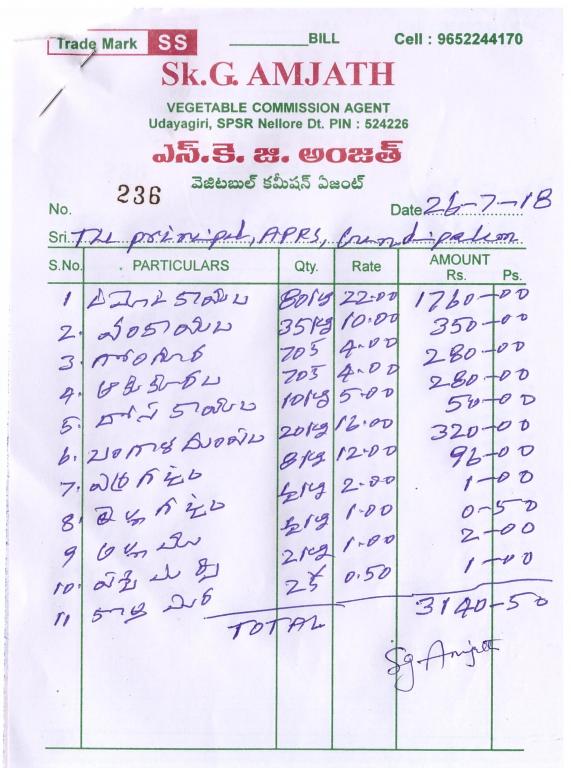 Trade Mark SS BILL Cell : 9652244170
Sk.G. AMJATH
VEGETABLE COMMISSION AGENT
Udayagiri, SPSR Nellore Dt. PIN : 524226
ఎస్.కె. జి. అంజత్
వెజిటబుల్ కమీషన్ ఏజంట్
No. 236 Date 26-7-18
Sri. The principal, APRS, Gundipalem
S.No. PARTICULARS Qty. Rate AMOUNT
Rs. Ps.
1 80kg 22.00 1760-00
2. వంకాయలు 35kg 10.00 350-00
3. గోంగూర 70 4.00 280-00
4. ఆకుకూరలు 70 4.00 280-00
5. దోసకాయలు 10kg 5.00 50-00
6. బంగాళదుంపలు 20kg 16.00 320-00
7. 8kg 12.00 96-00
8. ½kg 2.00 1-00
9 ½kg 1.00 0-50
10. పచ్చి 2kg 1.00 2-00
11 2 0.50 1-00
TOTAL 3140-50
Sg. Amjath